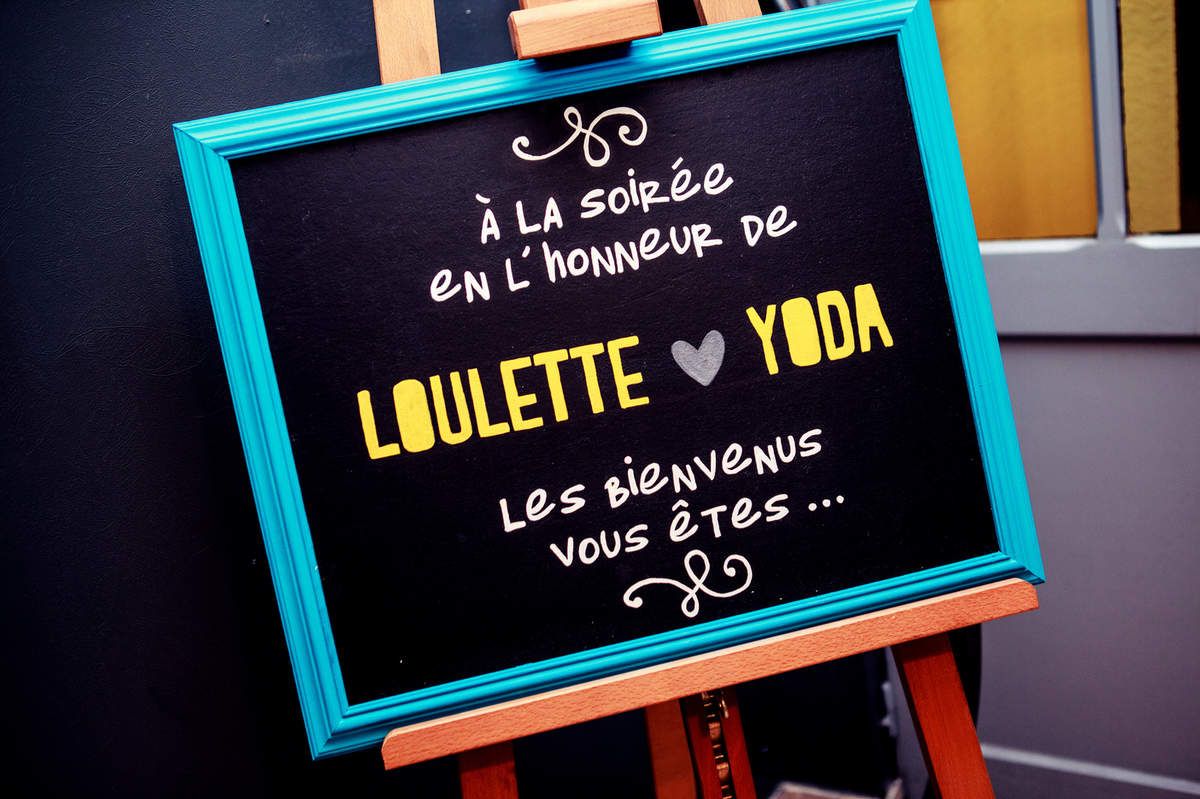 À LA SOIRÉE
EN L'HONNEUR DE
LOULETTE ♥ YODA
LES BIENVENUS
VOUS ÊTES ...